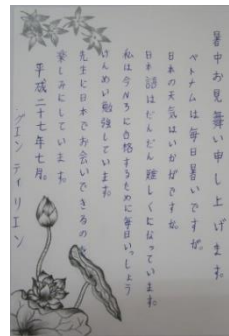 暑中お見舞い申し上げます。
ベトナムは毎日暑いですが、
日本の天気はいかがですか。
日本語はだんだん難しくなっています。
私は今N3に合格するために毎日いっしょう
けんめい勉強しています。
先生に日本でお会いできるのを
楽しみにしています。
平成二十七年七月。
グエン ティ リエン